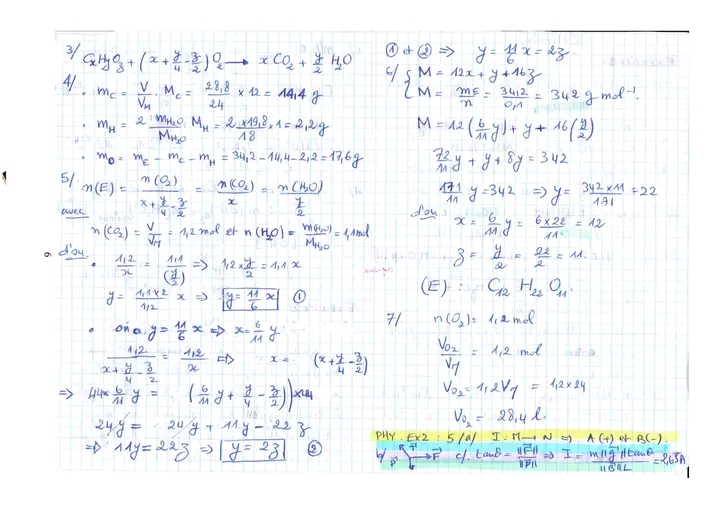 3/ CxHyOz + (x + y/4 - z/2) O2 → x CO2 + y/2 H2O
4/ • mC = V/VM · MC = 28,8/24 × 12 = 14,4 g
• mH = 2 mH2O/MH2O MH = 2×19,8/18 × 1 = 2,2 g
• mO = mE - mC - mH = 34,2 - 14,4 - 2,2 = 17,6 g
5/ n(E) = n(O2)/(x + y/4 - z/2) = n(CO2)/x = n(H2O)/(y/2)
avec
n(CO2) = V/VM = 1,2 mol et n(H2O) = m(H2O)/MH2O = 1,1 mol
d'où
• 1,2/x = 1,1/(y/2) => 1,2 × y/2 = 1,1 x
y = 1,1×2/1,2 x => y = 11/6 x ①
• on a, y = 11/6 x => x = 6/11 y
1,2/(x + y/4 - z/2) = 1,2/x => x = (x + y/4 - z/2)
=> 44× 6/11 y = (6/11 y + y/4 - z/2) × 44
24y = 24y + 11y - 22z
=> 11y = 22z => y = 2z ②
6
① et ② => y = 11/6 x = 2z.
6/ { M = 12x + y + 16z
M = mE/n = 34,2/0,1 = 342 g mol⁻¹.
M = 12(6/11 y) + y + 16(y/2)
72/11 y + y + 8y = 342
171/11 y = 342 => y = 342×11/171 = 22
d'où
x = 6/11 y = 6×22/11 = 12
z = y/2 = 22/2 = 11.
(E) : C12 H22 O11.
7/ n(O2) = 1,2 mol
VO2/VM = 1,2 mol
VO2 = 1,2 VM = 1,2×24
VO2 = 28,4 l.
PHY. Ex2 : 5/a/ I : M → N => A(+) et B(-).
b/ P T F c/. tanθ = ||F||/||P|| => I = m||g||tanθ/||B||L = 2,63A